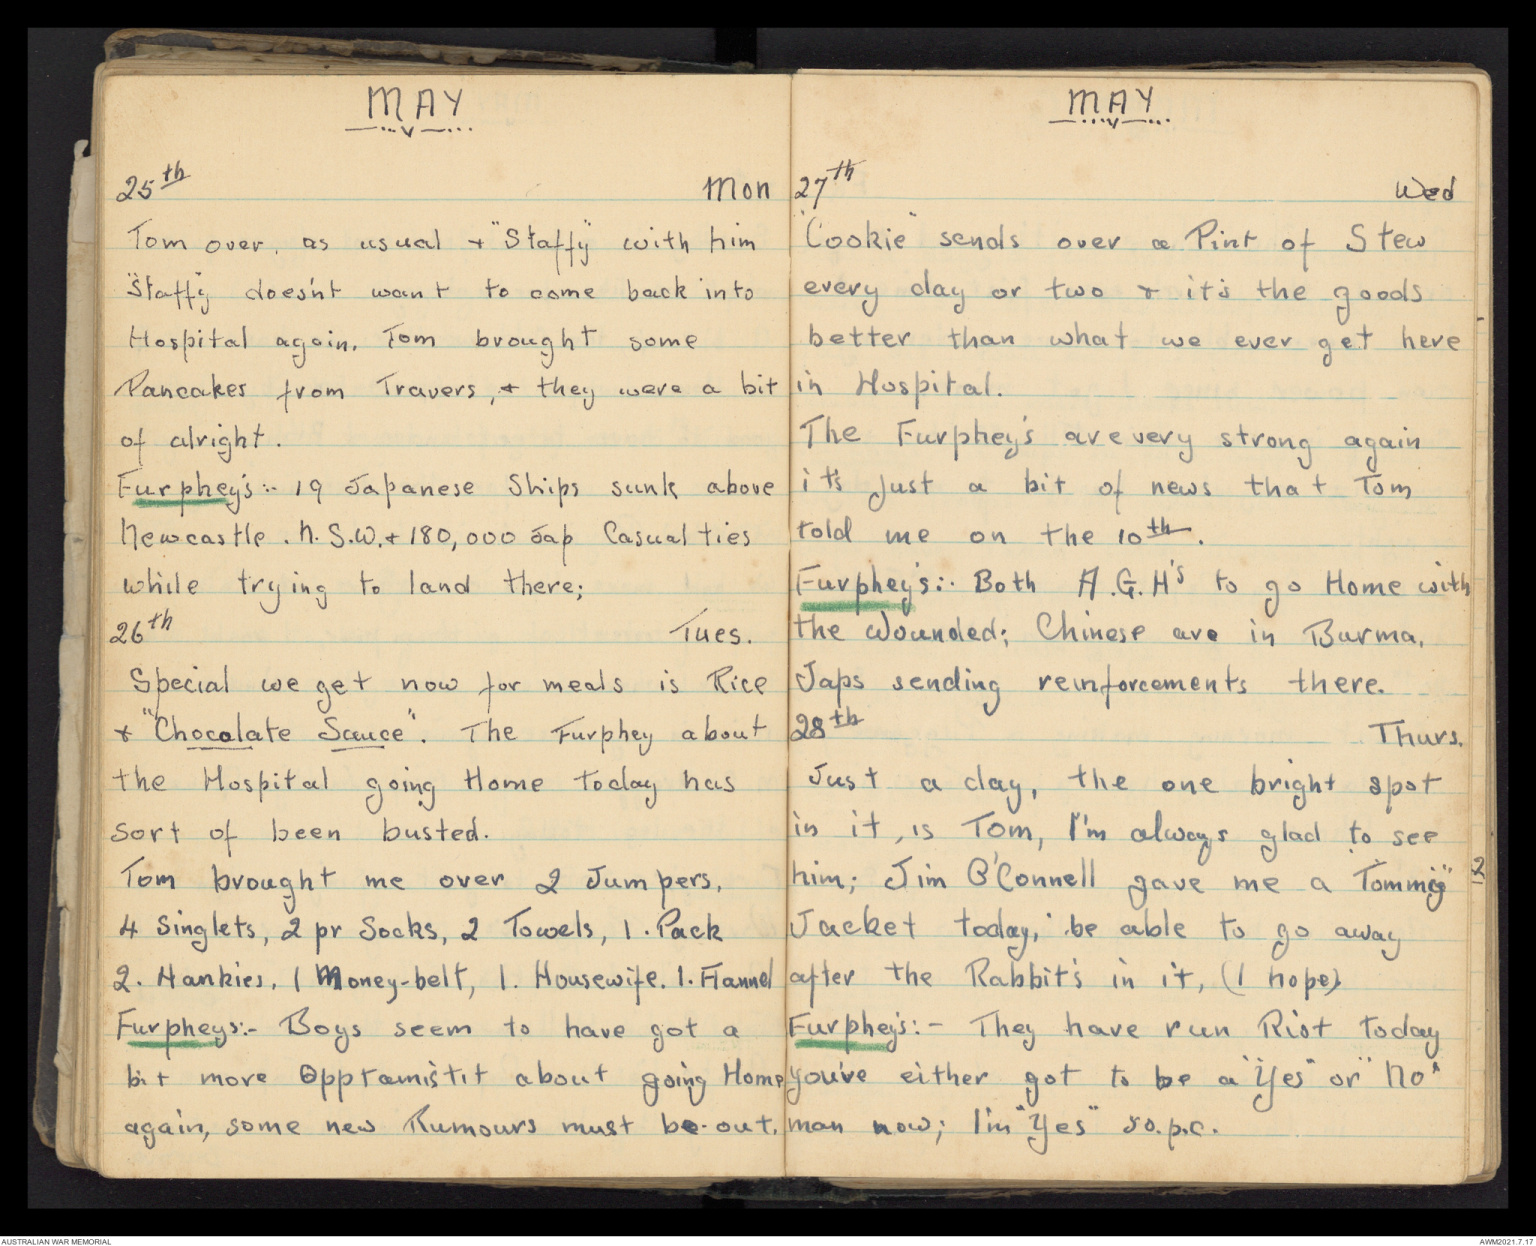 MAY
25th Mon
Tom over, as usual + "Staffy" with him
"Staffy" does'nt want to come back into
Hospital again. Tom brought some
Pancakes from Travers, + they were a bit
of alright.
Furphey's:- 19 Japanese Ships sunk above
Newcastle. N.S.W. + 180,000 Jap Casualties
while trying to land there;
26th Tues.
Special we get now for meals is Rice
+ "Chocolate Sauce". The Furphey about
the Hospital going Home today has
sort of been busted.
Tom brought me over 2 Jumpers,
4 Singlets, 2 pr Socks, 2 Towels, 1. Pack
2. Hankies, 1 Money-belt, 1. Housewife. 1. Flannel
Furpheys:- Boys seem to have got a
bit more Opptamistit about going Home
again, some new Rumours must be out.
MAY
27th Wed
"Cookie" sends over a Pint of Stew
every day or two + it's the goods
better than what we ever get here
in Hospital.
The Furphey's are very strong again
it's just a bit of news that Tom
told me on the 10th.
Furphey's:- Both A.G.H's to go Home with
the Wounded; Chinese are in Burma.
Japs sending reinforcements there.
28th Thurs.
Just a day, the one bright spot
in it, is Tom, I'm always glad to see
him; Jim O'Connell gave me a "Tommy"
Jacket today; be able to go away
after the Rabbit's in it, (I hope)
Furphey's:- They have run Riot today
you've either got to be a "Yes" or "No"
man now; I'm "Yes" 50.p.c.
2
AUSTRALIAN WAR MEMORIAL
AWM2021.7.17